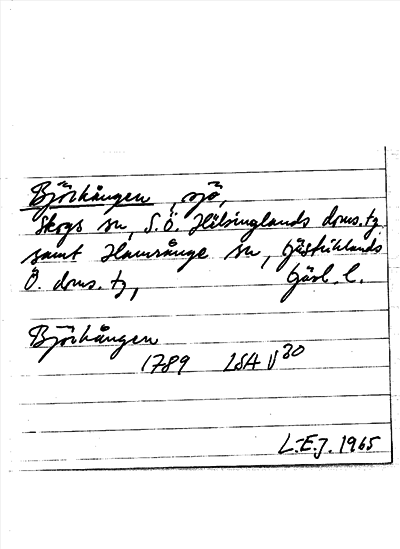 Björkången, sjö,
Skogs sn, S.Ö. Hälsinglands doms.tg
samt Hamrånge sn, Gästriklands
Ö. doms. tg, Gävl. l.
Björkången
1789 LSA V 30
L-E.J. 1965